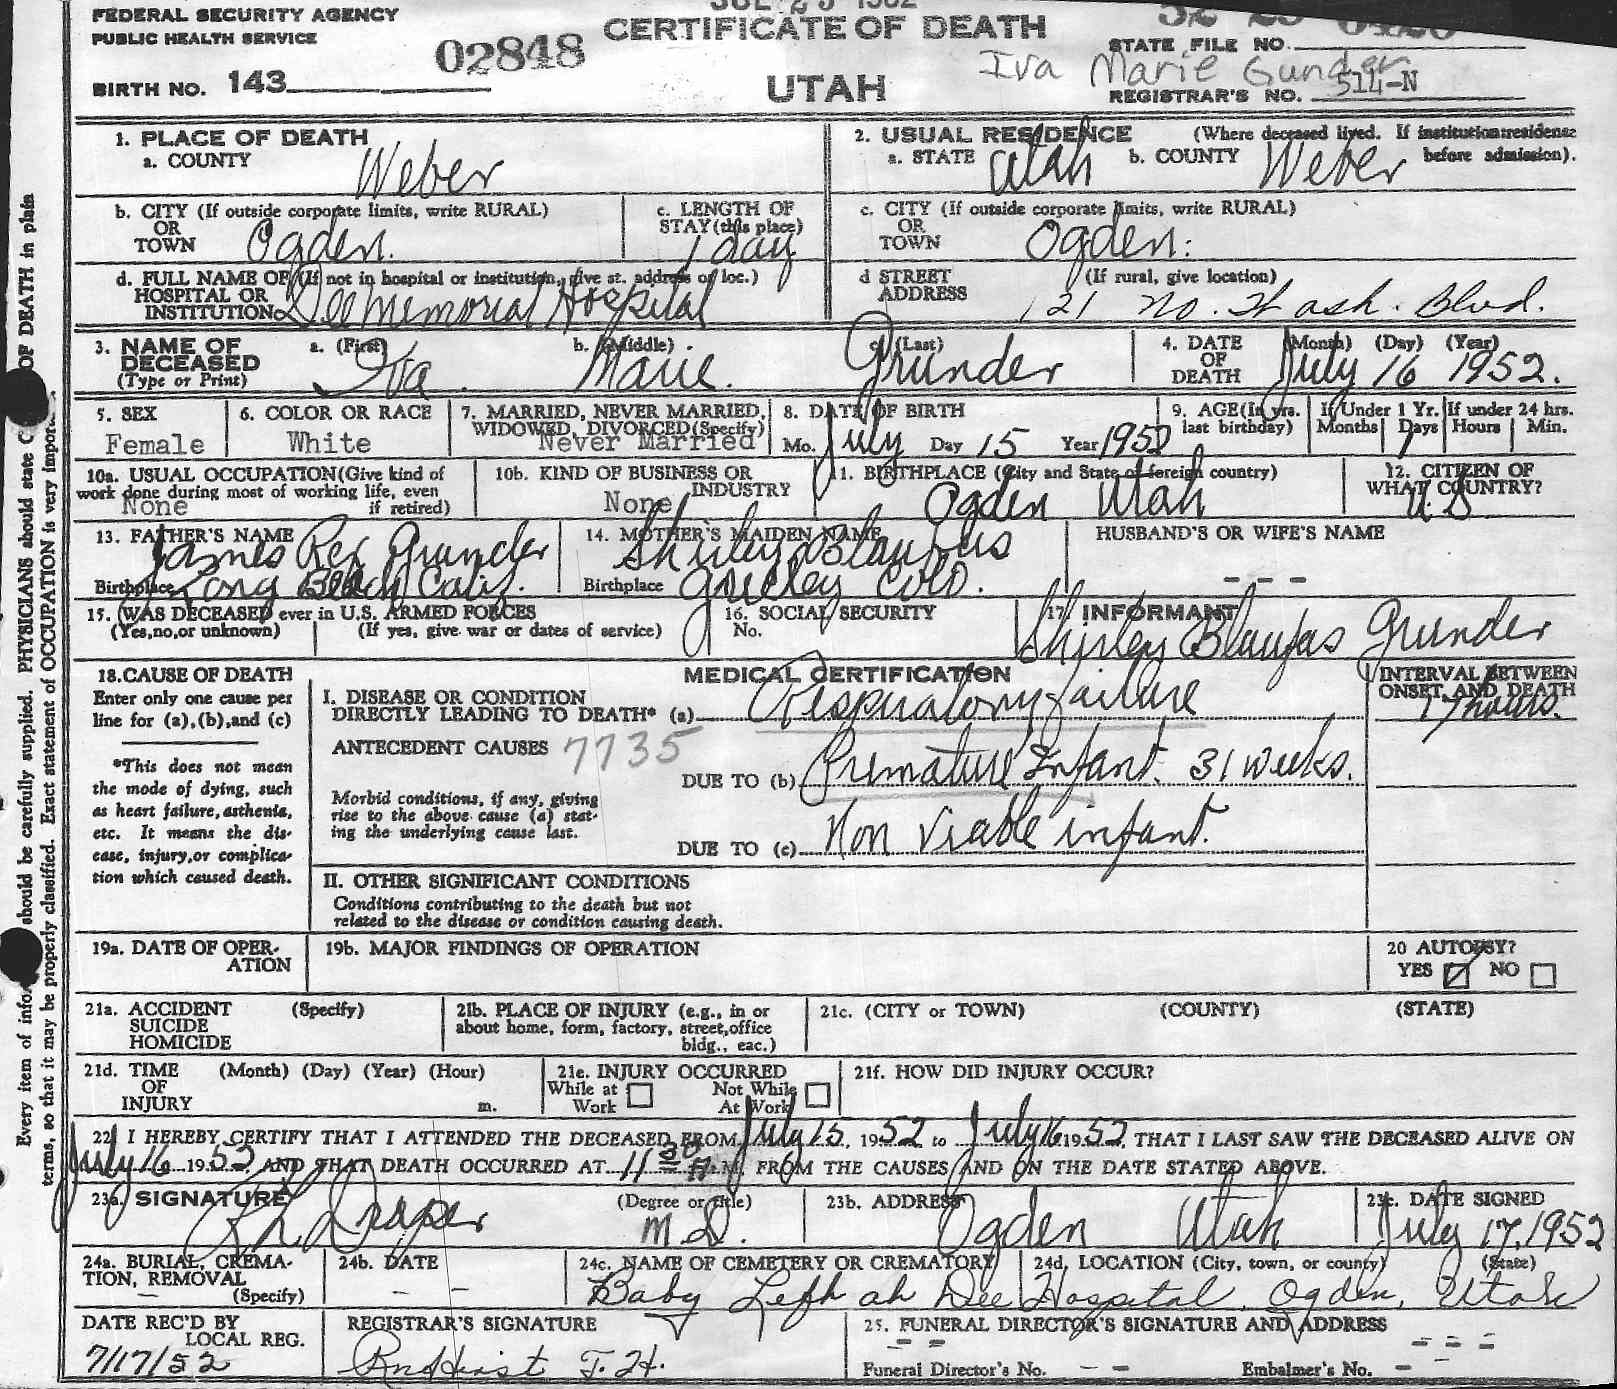 FEDERAL SECURITY AGENCY
PUBLIC HEALTH SERVICE
02848
CERTIFICATE OF DEATH
STATE FILE NO.
Iva Marie Gunder
BIRTH NO. 143
UTAH
REGISTRAR'S NO. 514-N
1. PLACE OF DEATH
a. COUNTY Weber
2. USUAL RESIDENCE (Where deceased lived. If institution: residence before admission).
a. STATE Utah b. COUNTY Weber
b. CITY (If outside corporate limits, write RURAL)
OR TOWN Ogden.
c. LENGTH OF STAY (this place) 1 day
c. CITY (If outside corporate limits, write RURAL)
OR TOWN Ogden.
d. FULL NAME OF (If not in hospital or institution, give st. address or loc.)
HOSPITAL OR INSTITUTION Dee Memorial Hospital
d STREET ADDRESS (If rural, give location)
121 No. Wash. Blvd.
3. NAME OF DECEASED (Type or Print)
a. (First) Iva b. (Middle) Marie. c. (Last) Grunder
4. DATE OF DEATH (Month) (Day) (Year) July 16 1952.
5. SEX Female
6. COLOR OR RACE White
7. MARRIED, NEVER MARRIED, WIDOWED, DIVORCED (Specify) Never Married
8. DATE OF BIRTH Mo. July Day 15 Year 1952
9. AGE (In yrs. last birthday)
If Under 1 Yr. Months Days 1
If under 24 hrs. Hours Min.
10a. USUAL OCCUPATION (Give kind of work done during most of working life, even if retired) None
10b. KIND OF BUSINESS OR INDUSTRY None
11. BIRTHPLACE (City and State of foreign country) Ogden Utah
12. CITIZEN OF WHAT COUNTRY? U.S
13. FATHER'S NAME James Rex Grunder
Birthplace Long Beach Calif.
14. MOTHER'S MAIDEN NAME Shirley Blaufus
Birthplace Greeley Colo.
HUSBAND'S OR WIFE'S NAME
- - -
15. WAS DECEASED ever in U.S. ARMED FORCES
(Yes, no, or unknown) (If yes, give war or dates of service)
16. SOCIAL SECURITY No.
17. INFORMANT
Shirley Blaufus Grunder
18. CAUSE OF DEATH
Enter only one cause per line for (a), (b), and (c)
*This does not mean the mode of dying, such as heart failure, asthenia, etc. It means the disease, injury, or complication which caused death.
MEDICAL CERTIFICATION
INTERVAL BETWEEN ONSET AND DEATH
I. DISEASE OR CONDITION DIRECTLY LEADING TO DEATH* (a) Respiratory failure 17 hours.
ANTECEDENT CAUSES 7735
Morbid conditions, if any, giving rise to the above cause (a) stating the underlying cause last.
DUE TO (b) Premature Infant. 31 weeks.
DUE TO (c) Non Viable infant.
II. OTHER SIGNIFICANT CONDITIONS
Conditions contributing to the death but not related to the disease or condition causing death.
19a. DATE OF OPERATION
19b. MAJOR FINDINGS OF OPERATION
20 AUTOPSY? YES NO
21a. ACCIDENT SUICIDE HOMICIDE (Specify)
21b. PLACE OF INJURY (e.g., in or about home, form, factory, street, office bldg., eac.)
21c. (CITY or TOWN) (COUNTY) (STATE)
21d. TIME OF INJURY (Month) (Day) (Year) (Hour) m.
21e. INJURY OCCURRED While at Work Not While At Work
21f. HOW DID INJURY OCCUR?
22. I HEREBY CERTIFY THAT I ATTENDED THE DECEASED FROM July 15, 1952 to July 16 1952, THAT I LAST SAW THE DECEASED ALIVE ON
July 16 1952, AND THAT DEATH OCCURRED AT 11 30 M, FROM THE CAUSES AND ON THE DATE STATED ABOVE.
23a. SIGNATURE Draper
(Degree or title) M.D.
23b. ADDRESS Ogden Utah
23c. DATE SIGNED July 17, 1952
24a. BURIAL, CREMATION, REMOVAL (Specify) -
24b. DATE - -
24c. NAME OF CEMETERY OR CREMATORY
24d. LOCATION (City, town, or county) (State)
Baby Left at Dee Hospital, Ogden, Utah
DATE REC'D BY LOCAL REG. 7/17/52
REGISTRAR'S SIGNATURE
25. FUNERAL DIRECTOR'S SIGNATURE AND ADDRESS
- - - - -
Funeral Director's No. - - Embalmer's No. - -
Every item of should be carefully supplied. PHYSICIANS should state OF DEATH in plain
terms, so that it may be properly classified. Exact statement of OCCUPATION is very